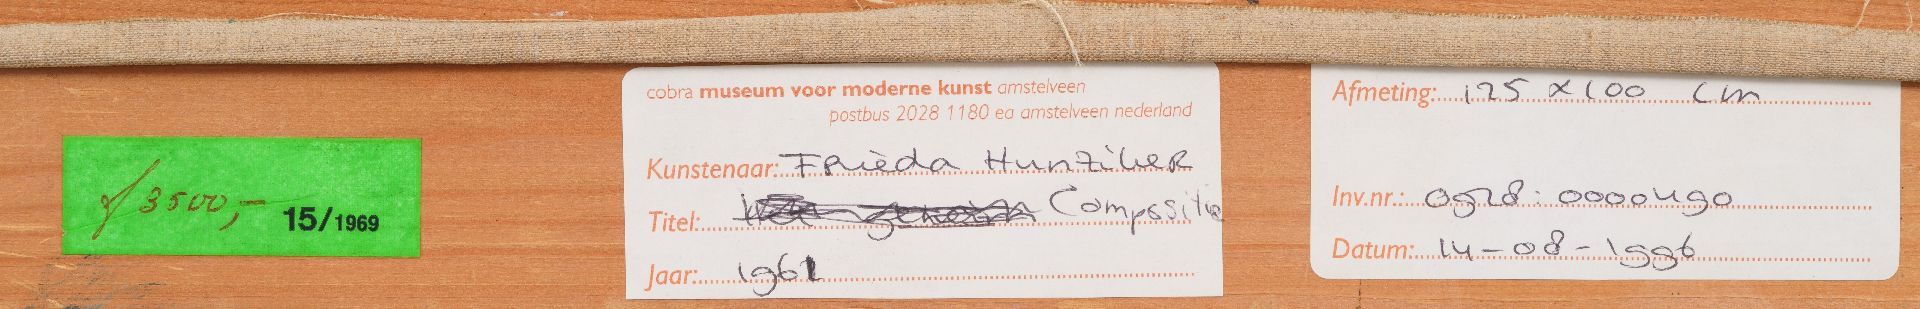 ƒ 3500,- 15/1969
cobra museum voor moderne kunst amstelveen
postbus 2028 1180 ea amstelveen nederland
Kunstenaar: Frieda Hunziker
Titel: Compositie
Jaar: 1961
Afmeting: 125 x 100 cm
Inv.nr.: 0928:0000490
Datum: 14-08-1996